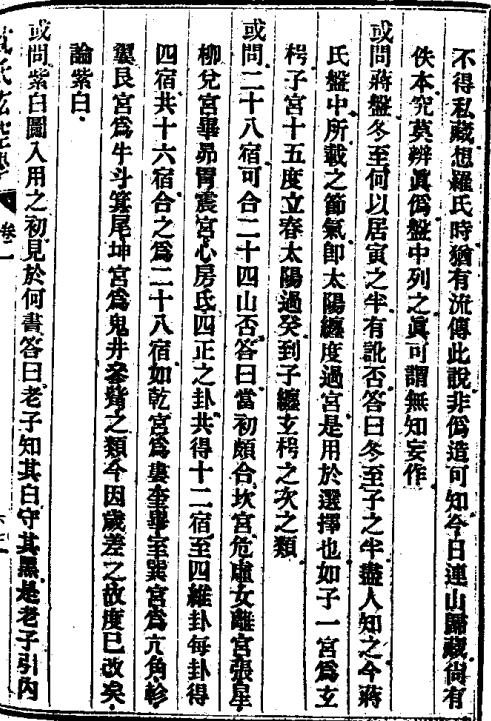 不得私藏想羅氏時猶有流傳此說非僞造可知今日連山歸藏尙有
佚本究莫辨眞僞盤中列之眞可謂無知妄作
或問蔣盤冬至何以居寅之半有訛否答曰冬至子之半盡人知之今蔣
氏盤中所載之節氣卽太陽纏度過宮是用於選擇也如子一宮爲玄
枵子宮十五度立春太陽過癸到子纏玄枵之次之類
或問二十八宿可合二十四山否答曰當初頗合坎宮危虛女離宮張星
柳兌宮畢昴胃震宮心房氐四正之卦共得十二宿至四維卦每卦得
四宿共十六宿合之爲二十八宿如乾宮爲婁奎壁室巽宮爲亢角軫
翼艮宮爲牛斗箕尾坤宮爲鬼井參觜之類今因歲差之故度已改矣
論紫白
或問紫白圖入用之初見於何書答曰老子知其白守其黑是老子引內
沈氏玄空學 卷一